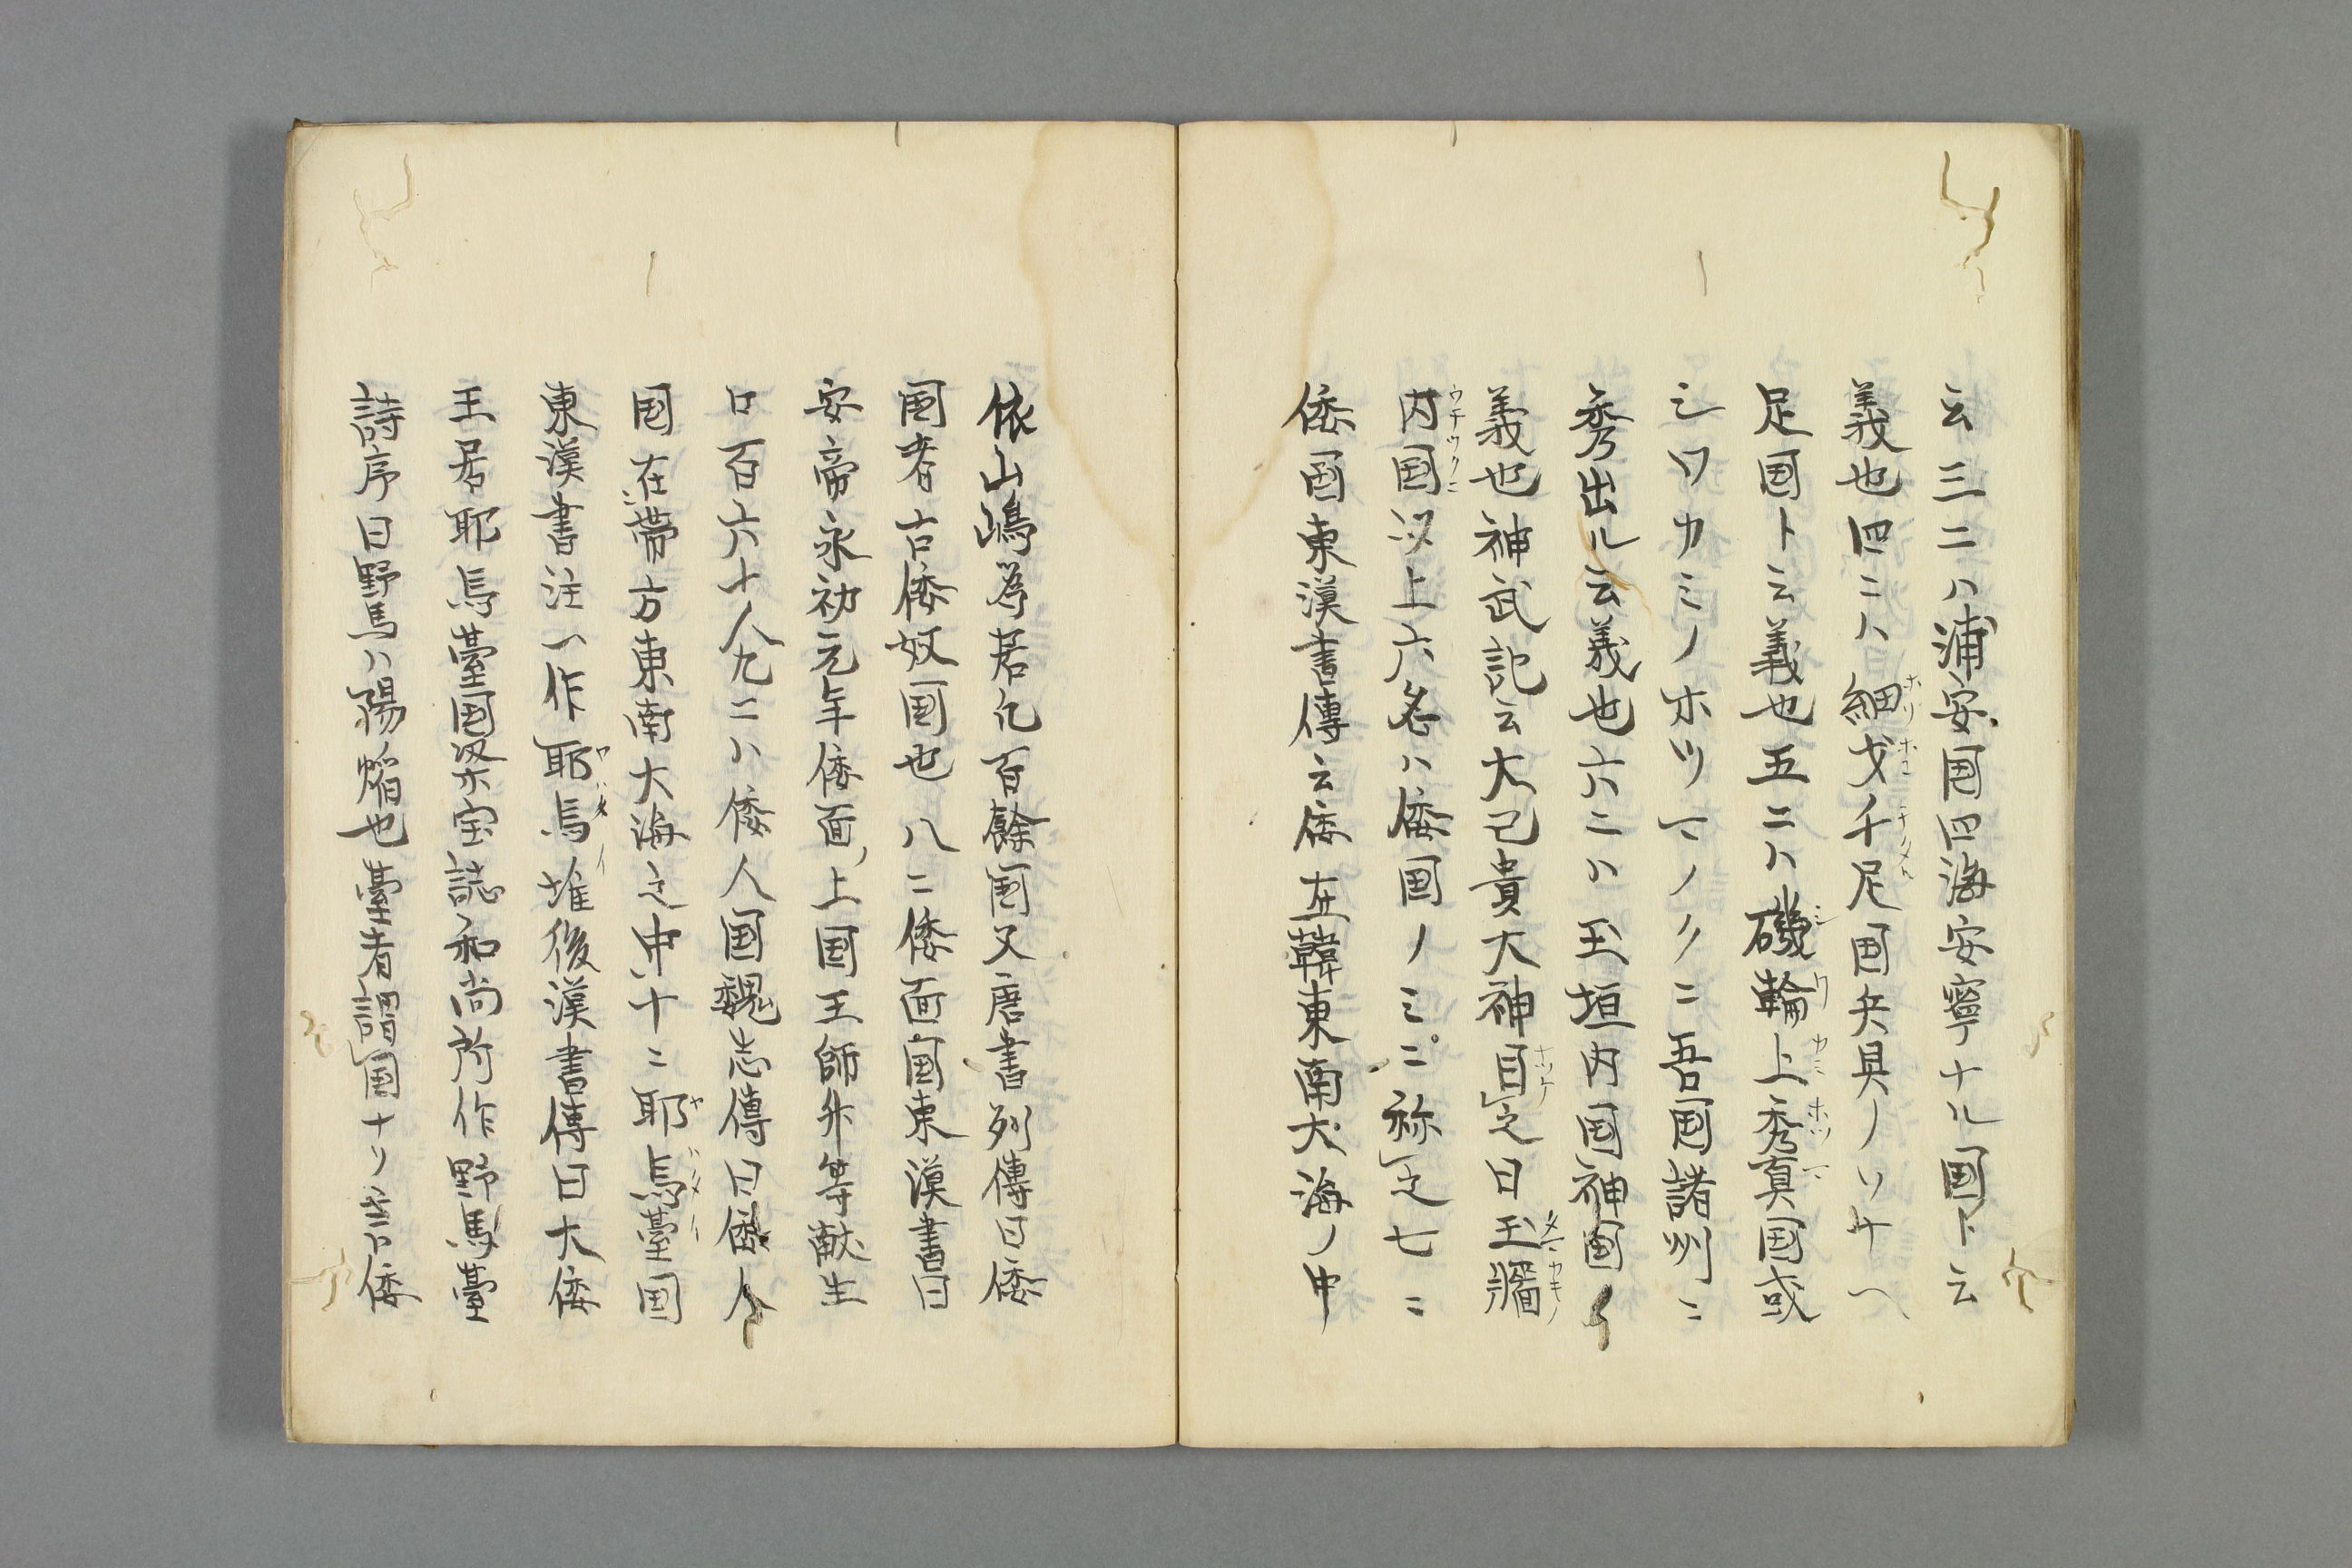 云三ニハ浦安国四海安寧ナル國ト云
義也四ニハ細戈千足国兵具ノソナヘ
足国ト云義也五ニハ磯輪上秀真国或
シワカミノホツマノクニ吾国諸州ニ
秀出ル云義也六ニハ玉垣内国神國ノ
義也神武記云大己貴大神目之曰玉牆
内国已上六名ハ倭国ノミニ称之七ニ
倭国東漢書傳云倭在韓東南大海ノ中
依山嶋為居凡百餘国又唐書列傳曰倭
国者古倭奴国也八ニ倭面國東漢書曰
安帝永初元年倭面上国王師升等献生
口百六十人九ニハ倭人国魏志傳曰倭人
国在帯方東南大海之中十ニ耶馬臺国
東漢書注ハ作耶馬堆後漢書傳曰大倭
王居耶馬臺國梁宝誌和尚作野馬臺
詩序曰野馬ハ陽焔也臺者謂國十ハ倭